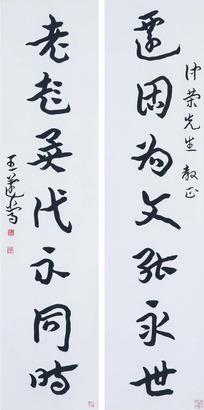 仲榮先生教正
遷固為文張永世
老異代同時
王蘧常